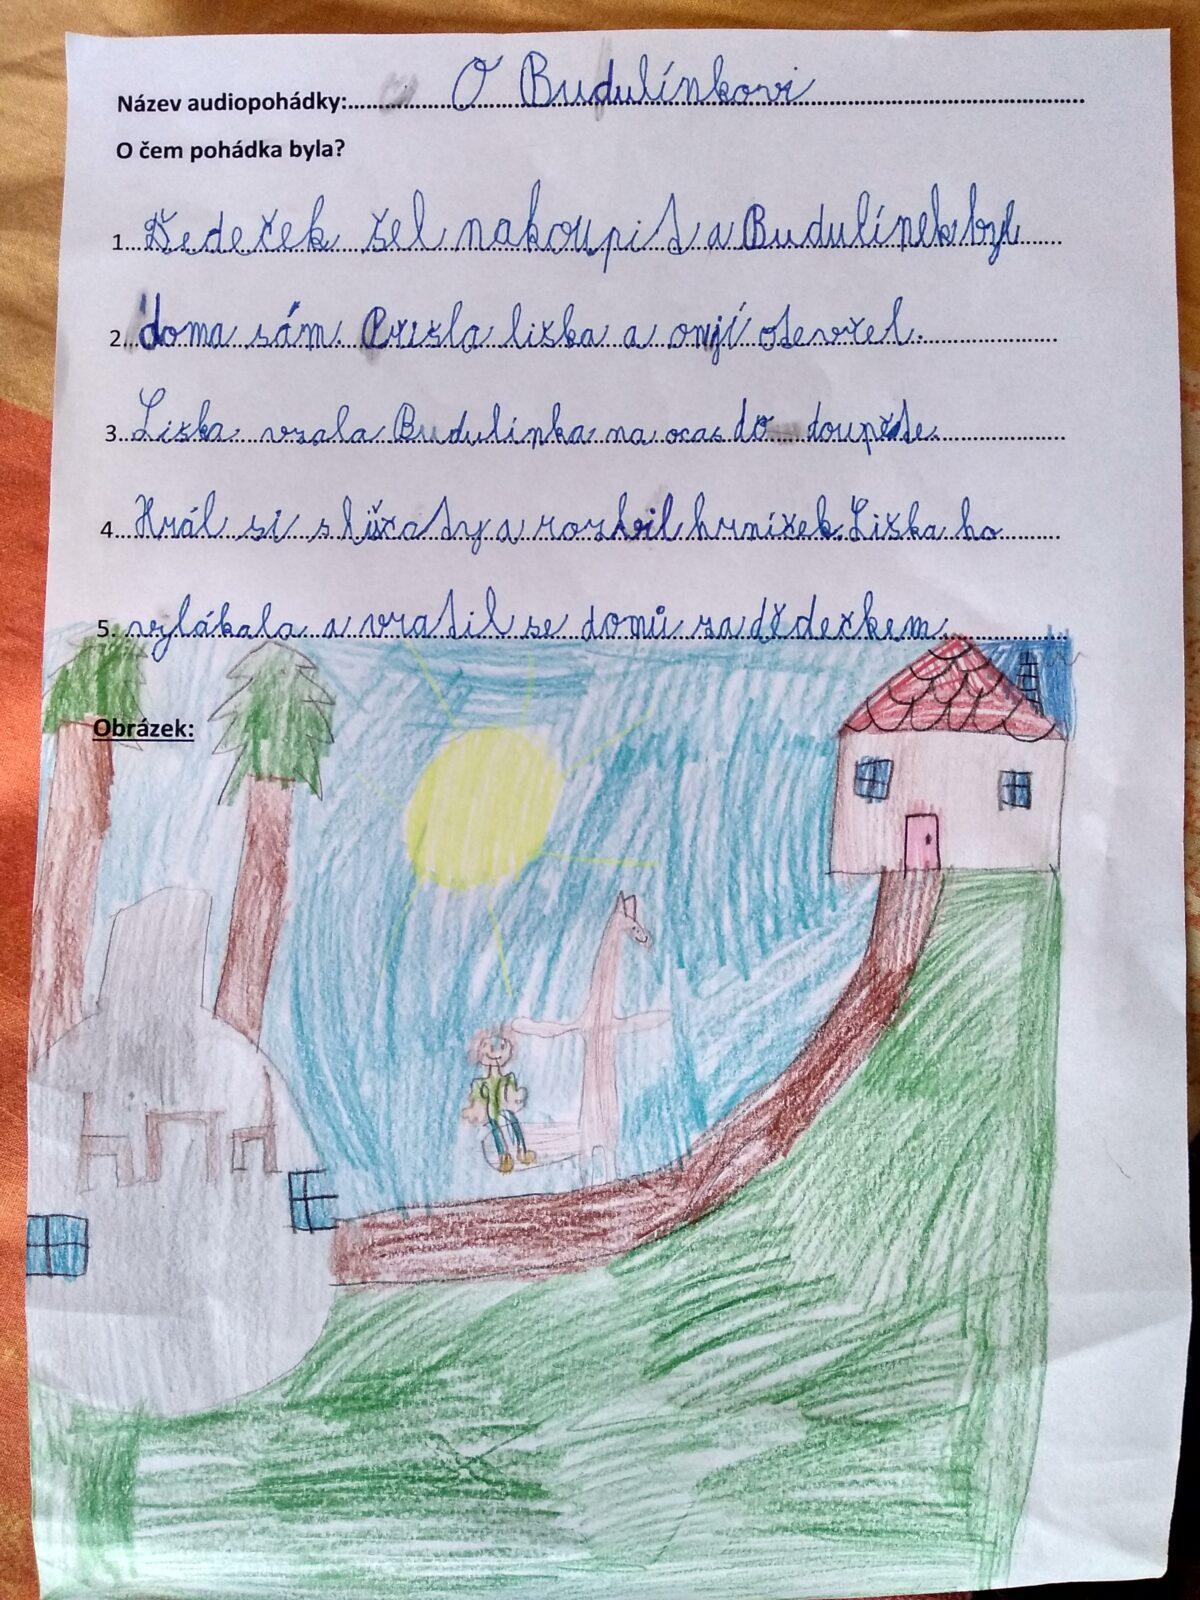 Název audiopohádky: O Budulínkovi
O čem pohádka byla?
1. Dědeček šel nakoupit a Budulínek byl
2. doma sám. Přišla liška a on jí otevřel.
3. Liška vzala Budulínka na ocas do doupěte.
4. Hrál si s lišťaty a rozbil hrníček. Liška ho
5. vylákala a vratil se domů za dědečkem.
Obrázek: